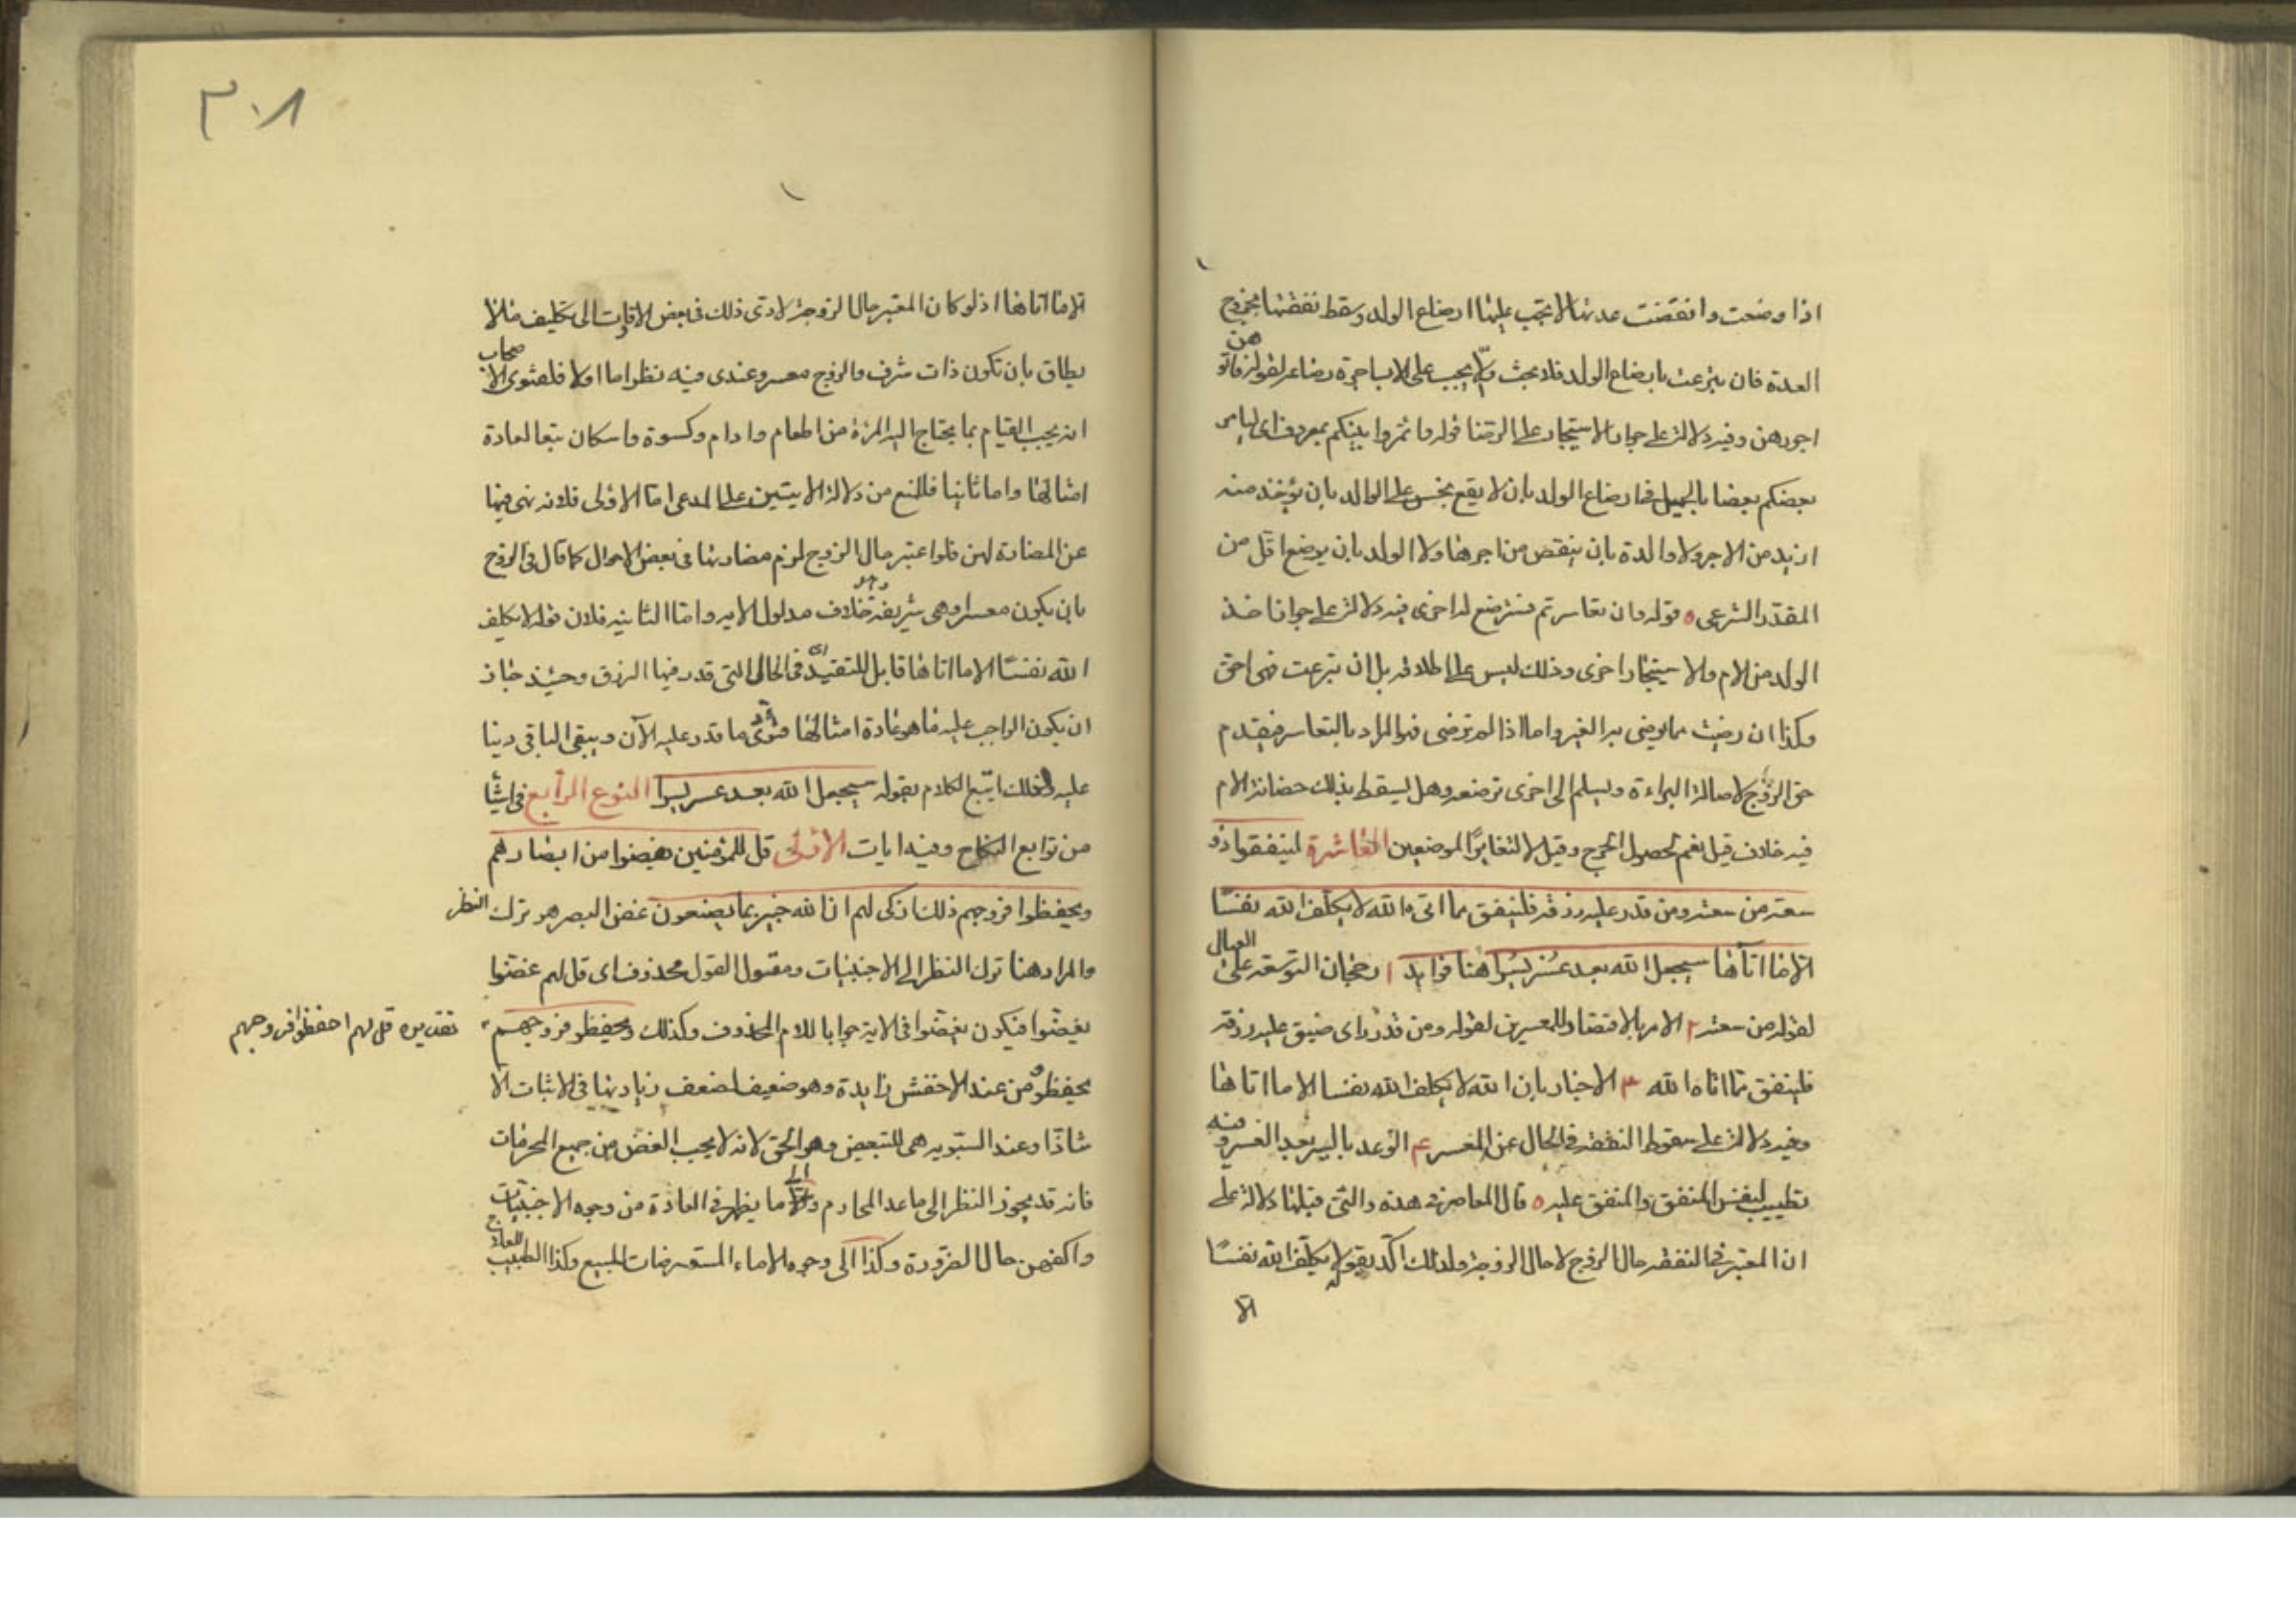 اذا وضعت وانقضت عدتها لا يجب عليها ارضاع الولد وسقط نفقتها بخروج
العدة فان تبرعت بارضاع الولد فلا بحث والا يجب على الاب اجرة رضاعه لقوله فاتوهن
اجورهن وفيه دلالة على جواز الاستيجار على الرضا قوله وائتمروا بينكم بمعروف اى ليامر
بعضكم بعضا بالجميل فى ارضاع الولد بان لا يقع بخس على الوالد بان يؤخذ منه
ازيد من الاجر ولا والدة بان ينقص من اجرها ولا الولد بان يرضع اقل من
المقدر الشرعى ٥ قوله وان تعاسرتم فسترضع له اخرى فيه دلالة على جواز اخذ
الولد من الام والاستيجار اخرى وذلك ليس على اطلاقه بل ان تبرعت فهى احق
وكذا ان رضيت بما يرضى به الغير واما اذا لم ترضى فهو المراد بالتعاسر فيقدم
حق الزوج لاصالة البراءة ويسلم الى اخرى ترضعه وهل يسقط بذلك حضانة الام
فيه خلاف قيل نعم لحصول الحرج وقيل لا لتغاير الموضعين العاشرة لينفق ذو
سعة من سعته ومن قدر عليه رزقه فلينفق مما اتى ه الله لا يكلف الله نفسا
الا ما اتاها سيجعل الله بعد عسر يسرا هنا فوايد ا رجحان التوسعة على العيال
لقوله من سعته ٢ الامر بالاقتصاد للمعسرين لقوله ومن قدر اى ضيق عليه رزقه
فلينفق مما اتاه الله ٣ الاخبار بان الله لا يكلف الله نفسا الا ما اتاها
وفيه دلالة على سقوط النفقة فى الحال عن المعسر ٤ الوعد باليسر بعد العسر وفيه
تطييب لنفس المنفق والمنفق عليه ٥ قال المعاصر فى هذه والتى قبلها دلالة على
ان المعتبر فى النفقة حال الزوج لا حال الزوجة ولذلك اكد بقوله لا يكلف الله نفسا
الا
٣٠٨
الا ما اتاها اذ لو كان المعتبر حال الزوجة لادى ذلك فى بعض الاوقات الى تكليف مالا
يطاق بان تكون ذات شرف والزوج معسر وعندى فيه نظر اما اولا فلفتوى الاصحاب
انه يجب القيام بما يحتاج اليه المراة من اطعام وادام وكسوة واسكان تبعا لعادة
امثالها واما ثانيا فللمنع من دلالة الايتين على المدعى اما الاولى فلانه نهى فيها
عن المضارة لهن فلو اعتبر حال الزوج لزم مضارتها فى بعض الاحوال كما قال فى الزوج
بان يكون معسرا وهى شريفة وهو خلاف مدلول الامر واما الثانية فلان قوله لا يكلف
الله نفسا الا ما اتاها قابل للتقييد اى فى الحال التى قدر فيها الرزق وحينئذ جاز
ان يكون الواجب عليه ما هو عادة امثالها فيؤدى ما قدر عليه الآن ويبقى الباقى دينا
عليه ولذلك اتبع الكلام بقوله سيجعل الله بعد عسر يسرا النوع الرابع فى اشيا
من توابع النكاح وفيه ايات الاولى قل للمؤمنين يغضوا من ابصارهم
ويحفظوا فروجهم ذلك ازكى لهم ان الله خبير بما يصنعون غض البصر هو ترك النظر
والمراد هنا ترك النظر الى الاجنبيات ومقول القول محذوف اى قل لهم غضوا
يغضوا فيكون يغضوا فى الاية جوابا للامر المحذوف وكذلك ويحفظوا فروجهم
تقديره قل لهم احفظوا فروجهم
يحفظوه من عند الاخفش زايدة وهو ضعيف لضعف زيادتها فى الاثبات الا
شاذا وعند السيبويه هى للتبعيض وهو الحق لانه لا يجب الغض من جميع المحرمات
فانه قد يجوز النظر الى ما عدا المحارم والى ما يظهر فى العادة من وجوه الاجنبيات
واكفهن حال الضرورة وكذا الى وجوه الاماء المستعرضات للبيع وكذا الطبيب للعلاج